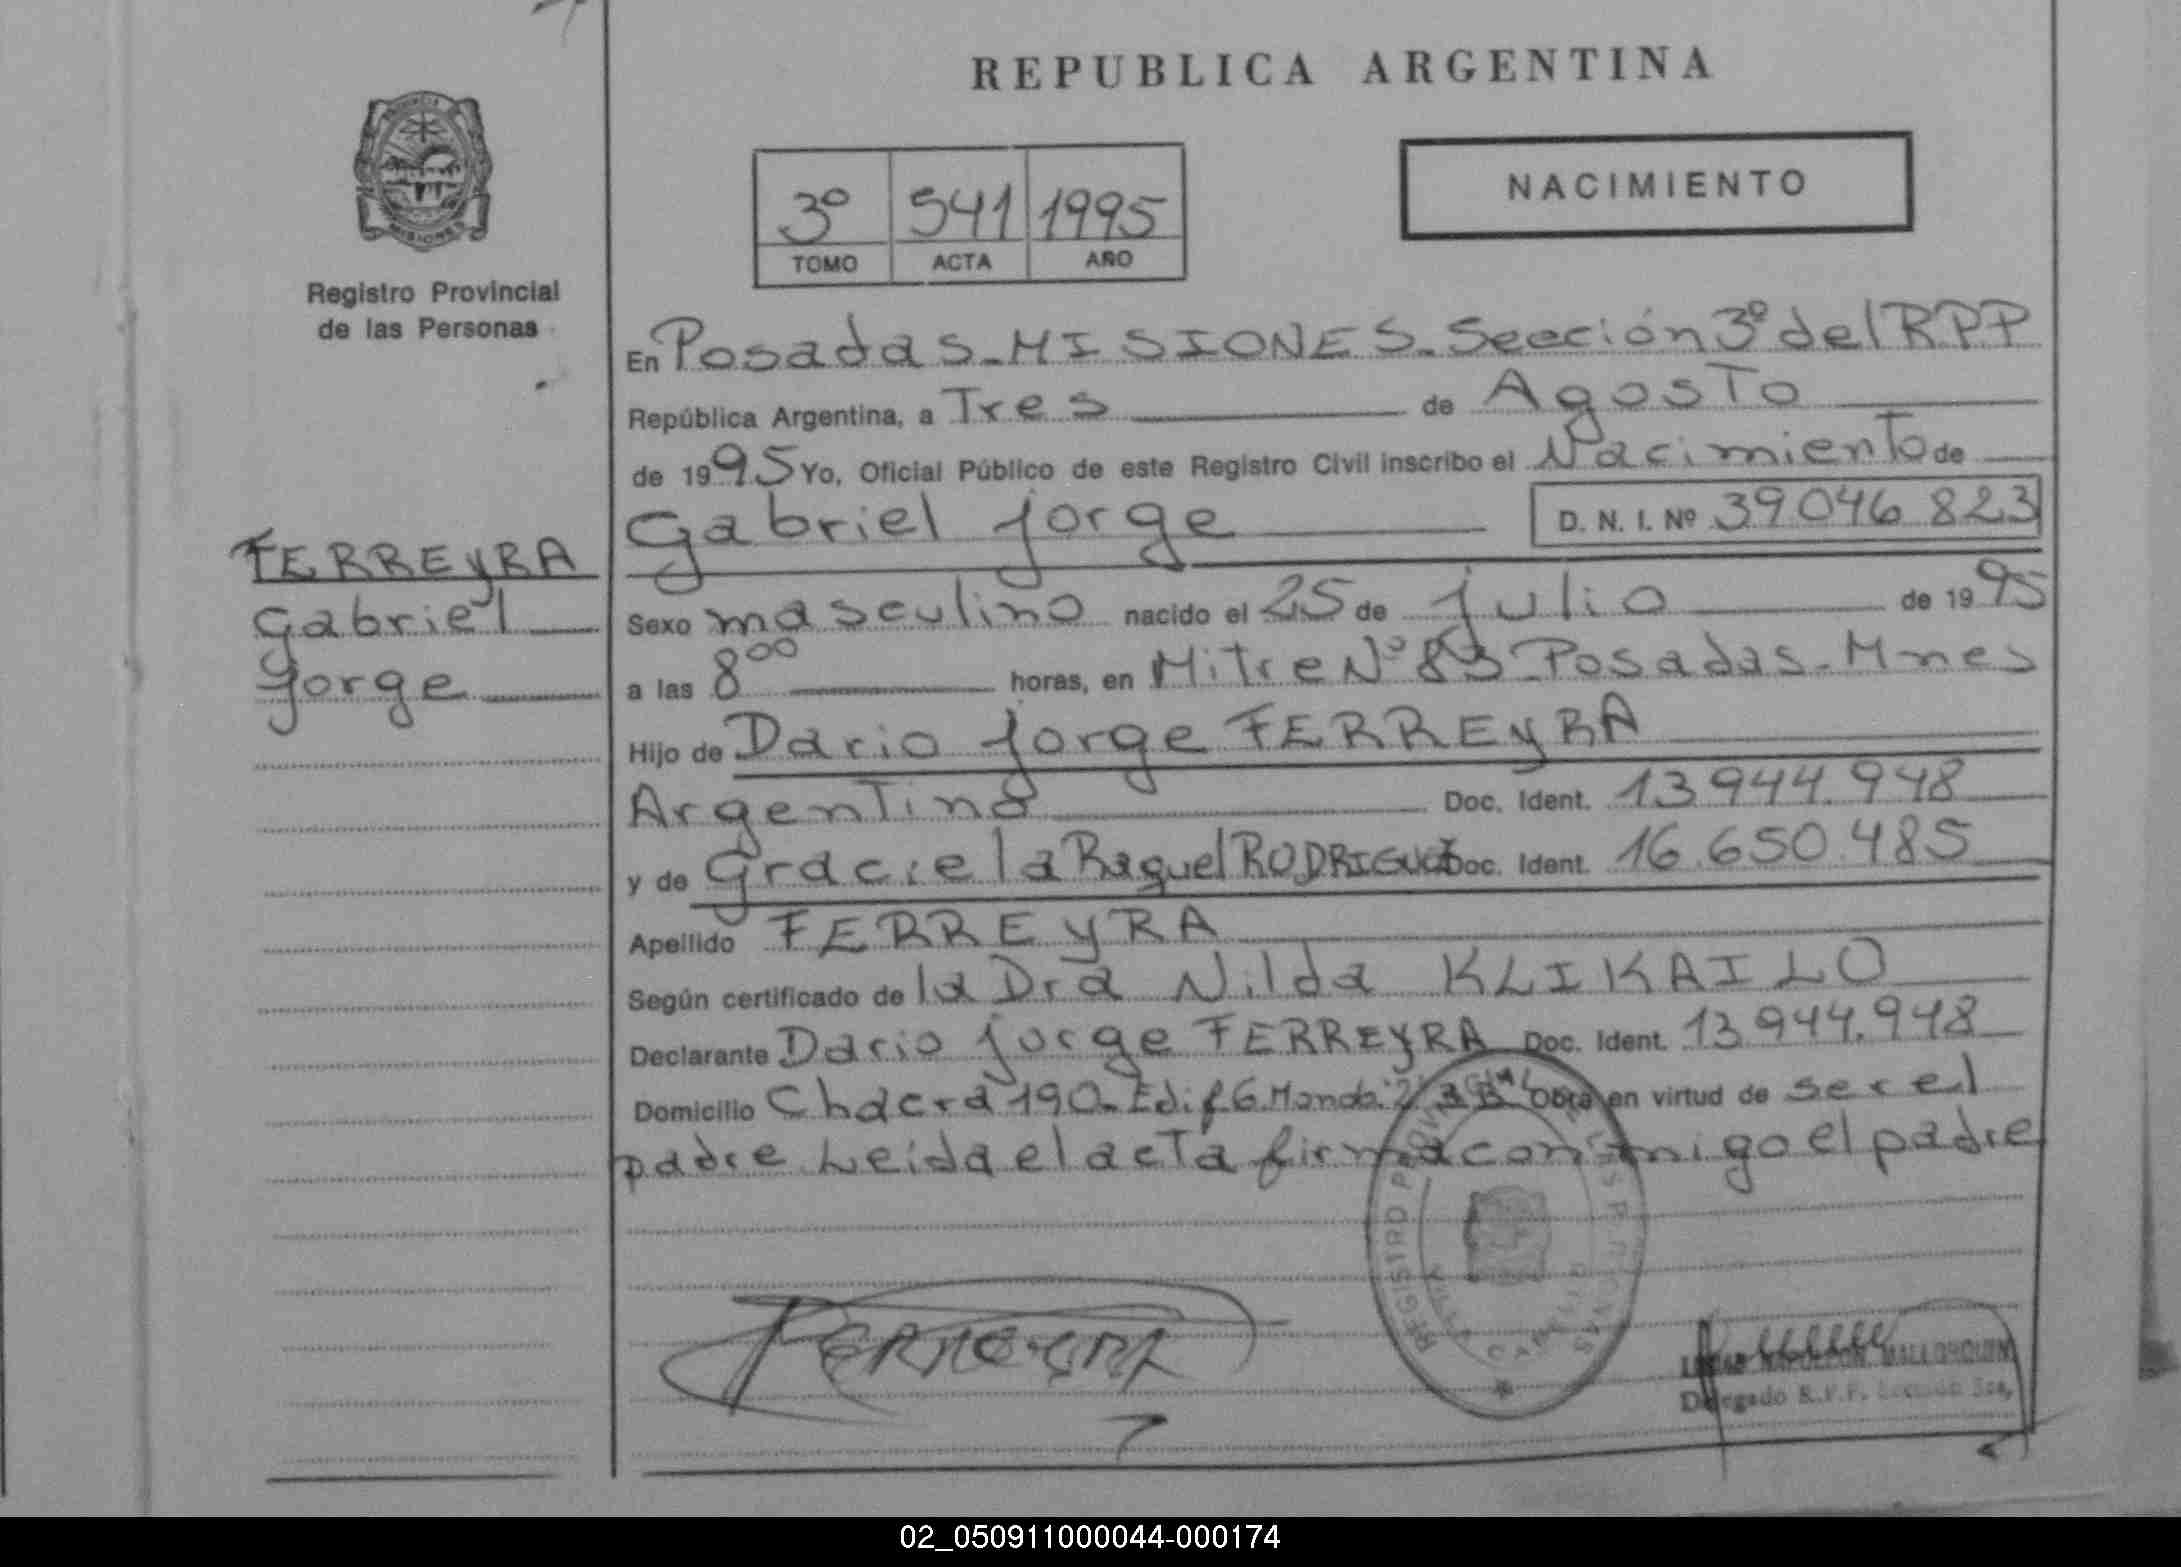 REPUBLICA ARGENTINA
NACIMIENTO
3º 541 1995
TOMO ACTA AÑO
MISIONES
Registro Provincial
de las Personas
En Posadas-MISIONES-Sección 3º del RPP
República Argentina, a Tres de Agosto
de 1995 Yo, Oficial Público de este Registro Civil inscribo el Nacimiento de
Gabriel Jorge D. N. I. Nº 39046823
FERREYRA
Gabriel
Jorge
Sexo masculino nacido el 25 de Julio de 1995
a las 8⁰⁰ horas, en Mitre Nº 83-Posadas-Mnes
Hijo de Dario Jorge FERREYRA
Argentino Doc. Ident. 13944.948
y de Graciela Raquel RODRIGUEZ Doc. Ident. 16.650.485
Apellido FERREYRA
Según certificado de la Dra Nilda KLIKAILO
Declarante Dario Jorge FERREYRA Doc. Ident. 13944.948
Domicilio Chacra 190-Edif 6 Obra en virtud de ser el
padre Leida el acta firma conmigo el padre
REGISTRO
FERREYRA
MALLORQUIN
Delegado R.P.P.
02_050911000044-000174